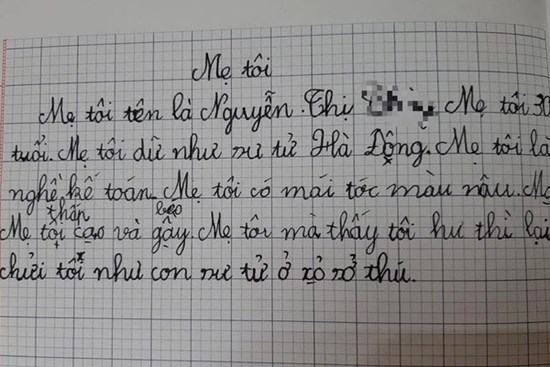 Mẹ tôi
Mẹ tôi tên là Nguyễn Thị Mẹ tôi 30
tuổi. Mẹ tôi dữ như sư tử Hà Động. Mẹ tôi là
nghề kế toán. Mẹ tôi có mái tóc màu nâu. Mẹ
thấp béo
Mẹ tôi cao và gầy. Mẹ tôi mà thấy tôi hư thì lại
chửi tôi như con sư tử ở xỏ sở thú.